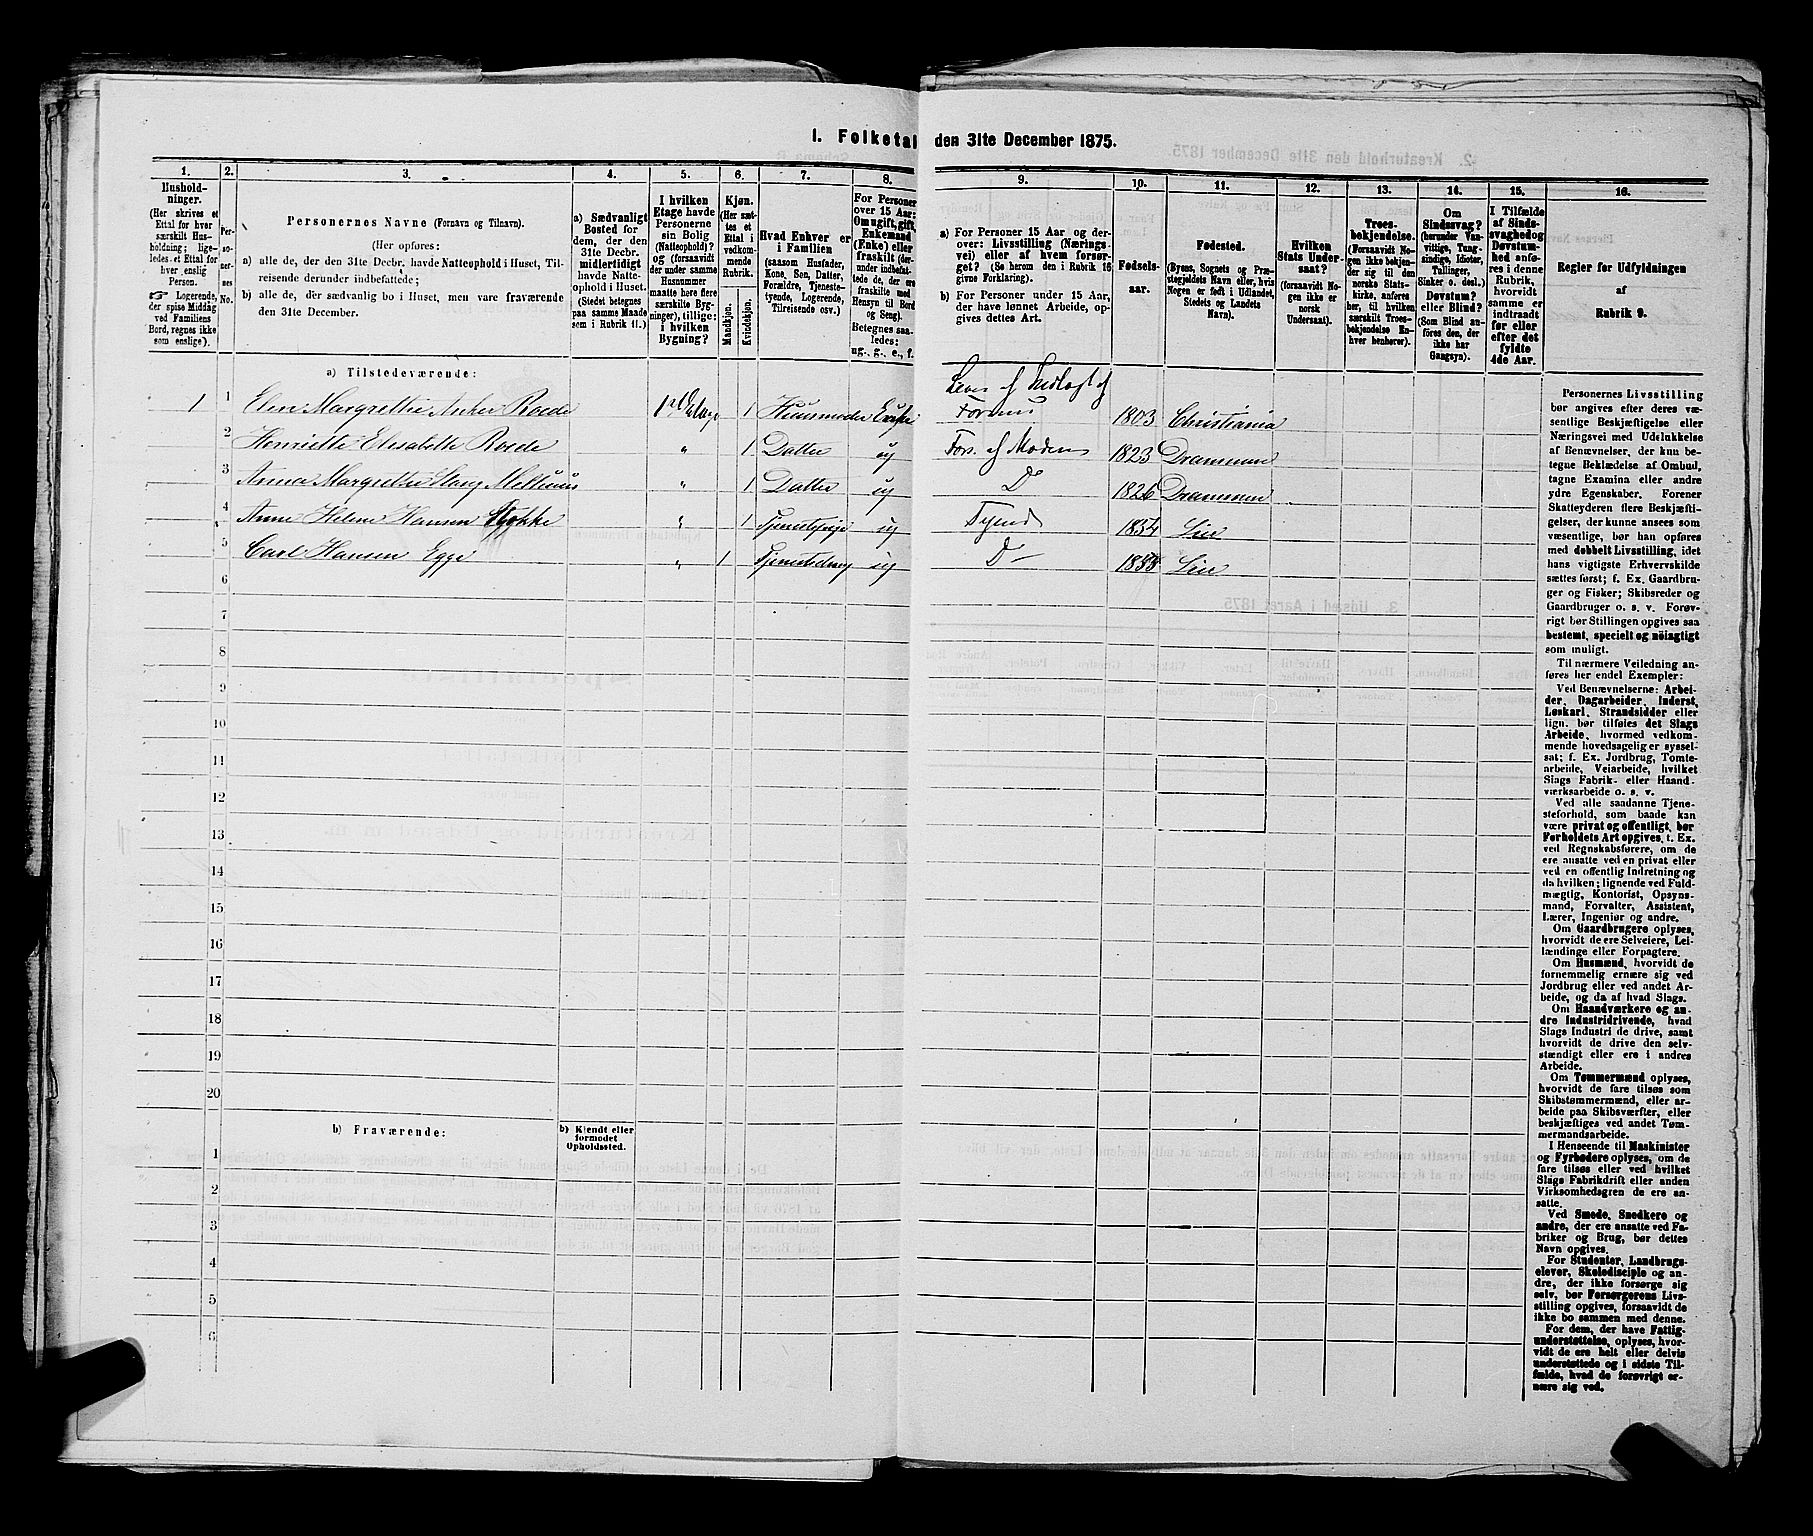 I. Folketal den 31te December 1875.
1. 2. 3. 4. 5. 6. 7. 8. 9. 10. 11. 12. 13. 14. 15. 16.
Hushold-
ninger.
(Her skrives et
Ettal for hver
særskilt Hus-
holdning; lige-
ledes et Ettal for
hver enslig
Person.
☞ Logerende,
der spise Middag
ved Familiens
Bord, regnes ikke
som enslige).
Per-
so-
ner-
nes
No.
Personernes Navne (Fornavn og Tilnavn).
(Her opføres:
a) alle de, der den 31te Decbr. havde Natteophold i Huset, Til-
reisende derunder indbefattede;
b) alle de, der sædvanlig bo i Huset, men vare fraværende
den 31te December.
a) Sædvanligt
Bosted for
dem, der den
31te Decbr.
midlertidigt
havde Natte-
ophold i Huset.
(Stedet betegnes
paa samme Maade
som i Rubrik 11.)
I hvilken
Etage havde
Personerne
sin Bolig
(Natteophold)?
og (forsaavidt
der under samme
Husnummer
maatte høre flere
særskilte Byg-
ninger), tillige:
i hvilken
Bygning?
Kjøn.
(Her sæt-
tes et
Ettal i
vedkom-
mende
Rubrik.
Mandkjøn.
Kvindekjøn.
Hvad Enhver er
i Familien
(saasom Husfader,
Kone, Søn, Datter,
Forældre, Tjeneste-
tyende, Logerende,
Tilreisende osv.)
For Personer
over 15 Aar:
Om ugift, gift,
Enkemand
(Enke) eller
fraskilt (der-
under indbefat-
tede de, der ere
fraskilte med
Hensyn til Bord
og Seng).
Betegnes saa-
ledes:
ug., g., e., f.
a) For Personer 15 Aar og der-
over: Livsstilling (Nærings-
vei) eller af hvem forsør-
get? (Se herom den i Rubrik 16
givne Forklaring).
b) For Personer under 15 Aar,
der have lønnet Arbeide, op-
gives dettes Art.
Fødsels-
aar.
Fødested.
(Byens, Sognets og Præ-
stegjeldets Navn eller, hvis
Nogen er født i Udlandet,
Stedets og Landets
Navn).
Hvilken
Stats Under-
saat?
(forsaavidt No-
gen ikke er
norsk
Undersaat).
Troes-
bekjendelse.
(Forsaavidt No-
gen ikke bekjen-
der sig til den
norske Stats-
kirke, anføres
her, til hvilken
særskilt Troes-
bekjendelse En-
hver henhører).
Om
Sindssvag?
(herunder Van-
vittige, Tung-
sindige, Idioter,
Tullinger,
Sinker o. desl.)
Døvstum?
eller Blind?
(Som Blind an-
føres den, der
ikke har
Gangsyn).
I Tilfælde
af Sinds-
svaghed og
Døvstum-
hed anfø-
res i denne
Rubrik,
hvorvidt
samme er
indtraadt
før eller
efter det
fyldte
4de Aar.
Regler for Udfyldningen
af
Rubrik 9.
a) Tilstedeværende:
Lever af Indlagt af
1 1 Elen Margrethe Anker Roede 1st Etage 1 Huusmoder Enke Formue 1803 Christiania
2 Henriette Elisabeth Roede " 1 Datter ug Fors. af Moderen 1823 Drammen
3 Anna Margrethe Stary " 1 Datter ug D° 1826 Drammen
4 Anne Helene Hansen " 1 Tjenestepige ug Tyende 1854 Lier
5 Carl Hansen Egge " 1 Tjenestedreng ug D° Lier
6
7
8
9
10
11
12
13
14
15
16
17
18
19
20
b) Fraværende:
b) Kjendt eller
formodet
Opholdssted.
1
2
3
4
5
6
Personernes Livsstilling
bør angives efter deres væ-
sentlige Beskjæftigelse eller
Næringsvei med Udelukkelse
af Benævnelser, der kun be-
tegne Beklædelse af Ombud,
tagne Examina eller andre
ydre Egenskaber. Forener
Skatteyderen flere Beskjæfti-
gelser, der kunne ansees som
væsentlige, bør han opføres
med dobbelt Livsstilling, idet
hans vigtigste Erhvervskilde
sættes først; f. Ex. Gaardbru-
ger og Fisker; Skibsreder og
Gaardbruger o. s. v. Forøv-
rigt bør Stillingen opgives saa
bestemt, specielt og nöiagtigt
som muligt.
Til nærmere Veiledning an-
føres her endel Exempler:
Ved Benævnelserne: Arbei-
der, Dagarbeider, Inderst,
Løskarl, Strandsidder eller
lign. bør tilføies det Slags
Arbeide, hvormed vedkom-
mende hovedsagelig er syssel-
sat; f. Ex. Jordbrug, Tomte-
arbeide, Veiarbeide, hvilket
Slags Fabrik- eller Haand-
værksarbeide o. s. v.
Ved alle saadanne Tjene-
steforhold, som baade kan
være privat og offentligt, bør
Forholdets Art opgives, t. Ex.
ved Regnskabsførere, om de
ere ansatte ved en privat eller
ved en offentlig Indretning og
da hvilken; lignende ved Fuld-
mægtig, Kontorist, Opsyns-
mand, Forvalter, Assistent,
Lærer, Ingeniør og andre.
Om Gaardbrugere oplyses,
hvorvidt de ere Selveiere, Lei-
lændinge eller Forpagtere.
Om Husmænd, hvorvidt de
fornemmelig ernære sig ved
Jordbrug eller ved andet Ar-
beide, og da af hvad Slags.
Om Haandværkere og an-
dre Industridrivende, hvad
Slags Industri de drive, samt
hvorvidt de drive den selv-
stændigt eller ere i andres
Arbeide.
Om Tømmermænd oplyses,
hvorvidt de fare tilsøs som
Skibstømmermænd, eller ar-
beide paa Skibsværfter, eller
beskjæftiges ved andet Tøm-
mermandsarbeide.
I Henseende til Maskinister
og Fyrbødere oplyses, om de
fare tilsøs eller ved hvilket
Slags Fabrikdrift eller anden
Virksomhedsgren de ere an-
satte.
Ved Smede, Snedkere og
andre, der ere ansatte ved Fa-
briker og Brug, bør dettes
Navn opgives.
For Studenter, Landbrugs-
elever, Skoledisciple og an-
dre, der ikke forsørge sig
selv, bør Forsørgerens Livs-
stilling opgives, forsaavidt de
ikke bo sammen med denne.
For dem, der have Fattig-
understøttelse, oplyses, hvor-
vidt de ere helt eller delvis
understøttede og i sidste Til-
fælde, hvad de forøvrigt er-
nære sig ved.